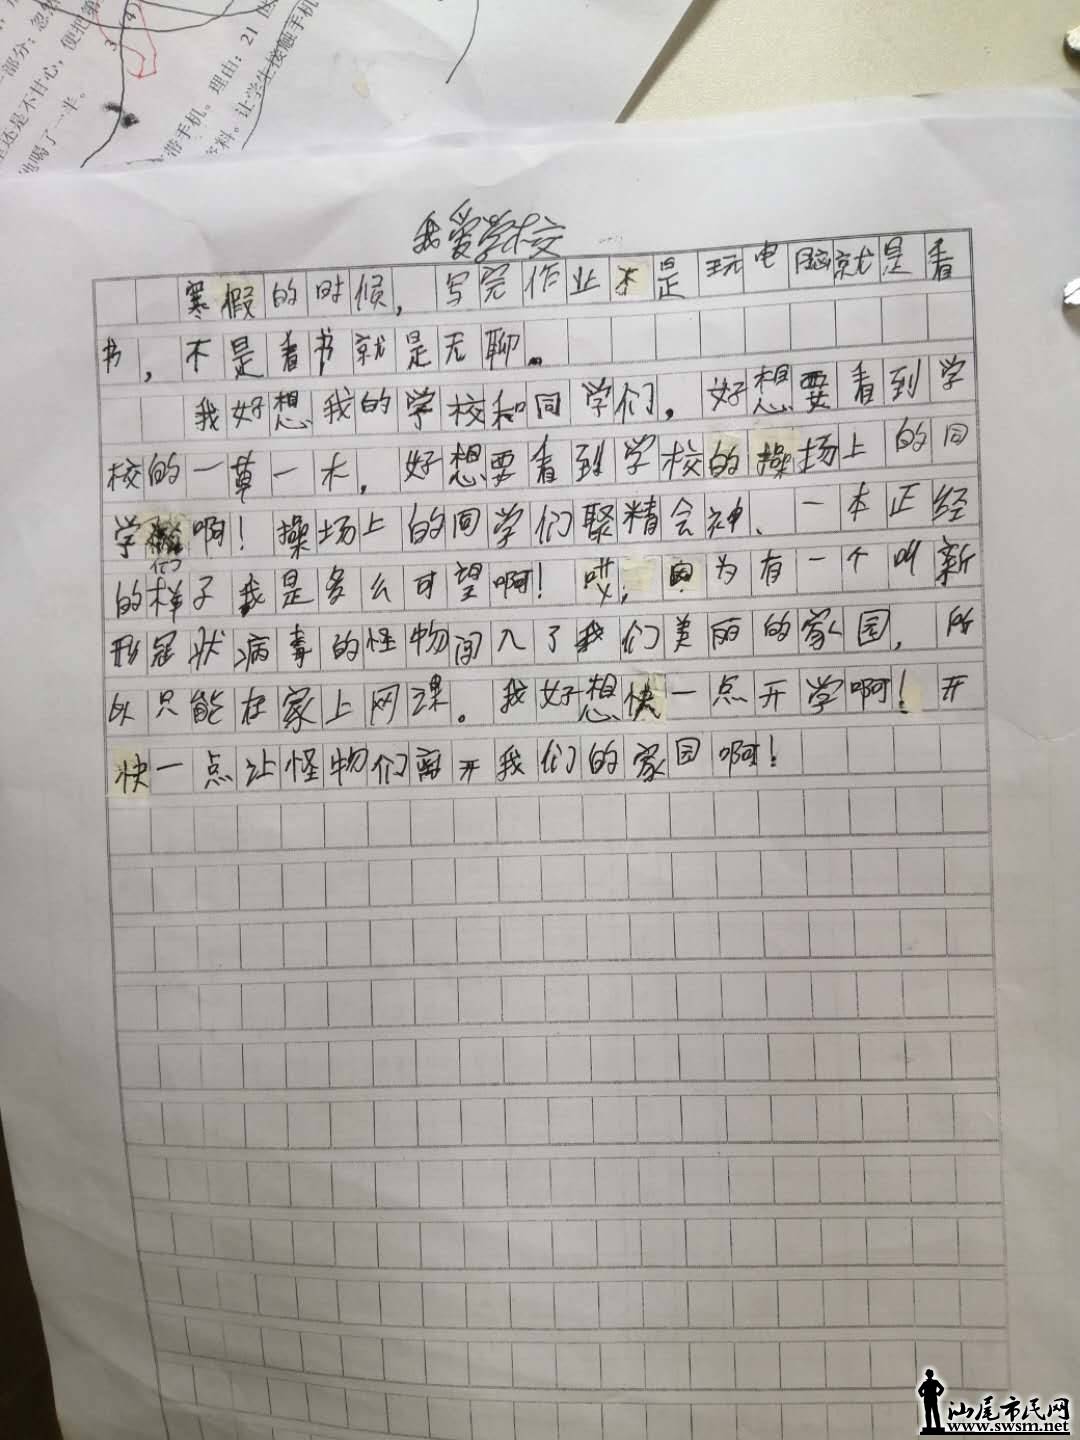 部分：忽
还是不甘心，便把第
他喝了一半。
带手机。理由：21
料。让学生接触手机
3
4
我爱学校
寒假的时候，写完作业不是玩电脑就是看
书，不是看书就是无聊。
我好想我的学校和同学们，好想要看到学
校的一草一木，好想要看到学校的操场上的同
学们啊！操场上的同学们聚精会神、一本正经
的样子我是多么可望啊！哎，因为有一个叫新
形冠状病毒的怪物闯入了我们美丽的家园，所
以只能在家上网课。我好想快一点开学啊！开
快一点让怪物们离开我们的家园啊！
汕尾市民网
www.swsm.net